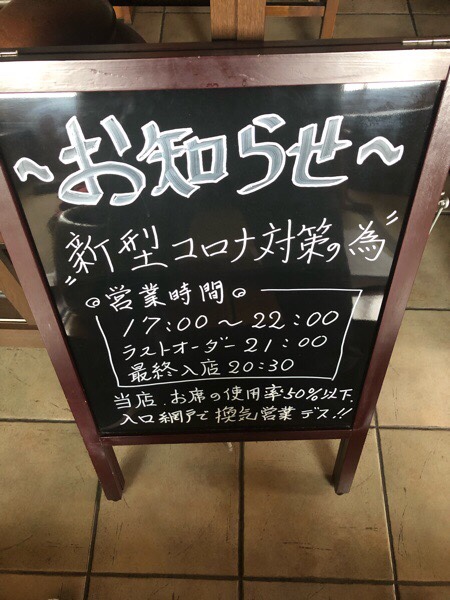 ～お知らせ～
〃新型コロナ対策の為〃
◎営業時間◎
17:00～22:00
ラストオーダー21:00
最終入店20:30
当店.お席の使用率50%以下.
入口網戸で換気営業デス!!